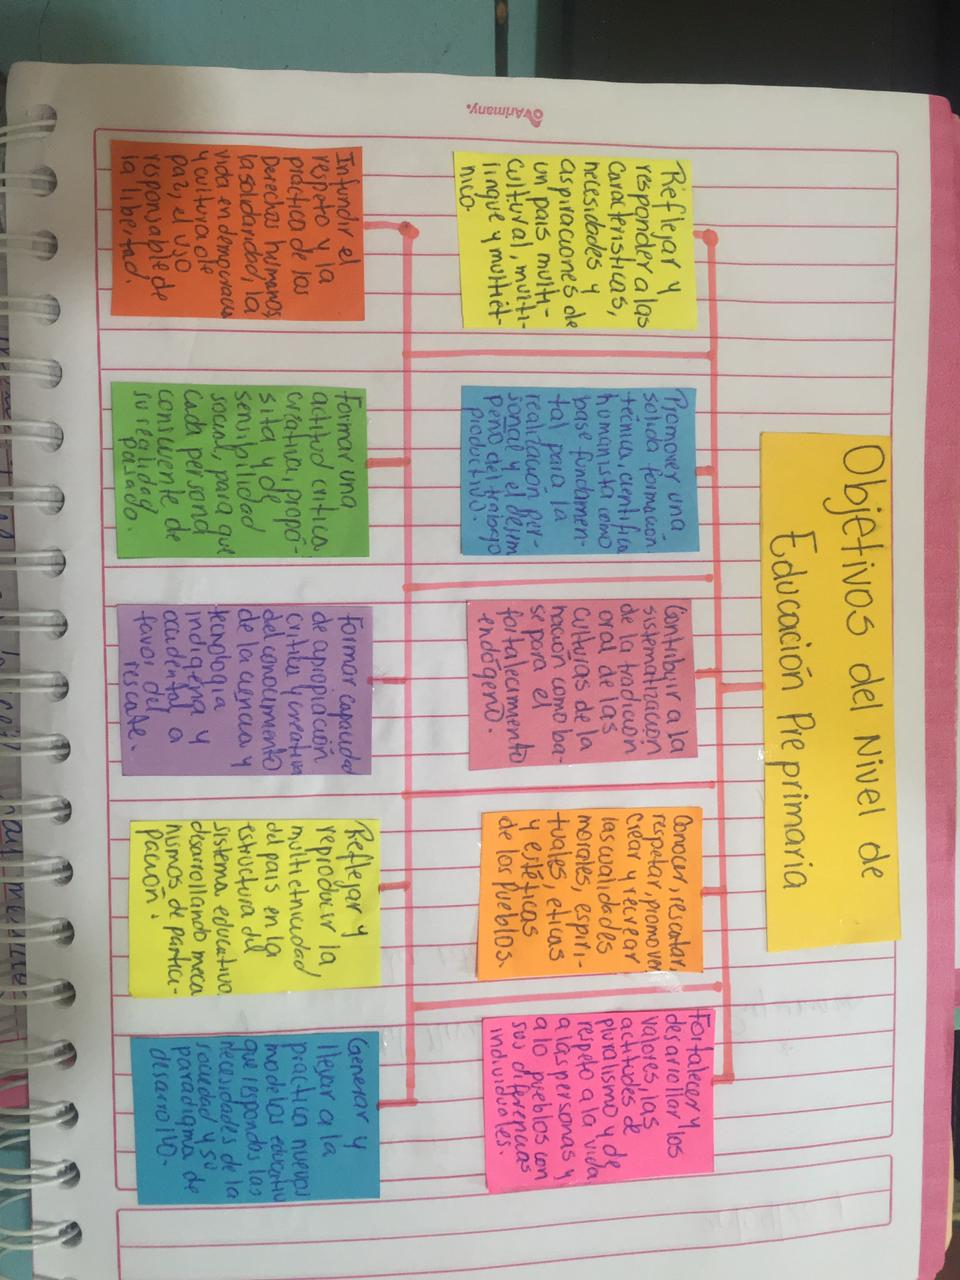 Objetivos del Nivel de
Educación Preprimaria
Reflejar y
responder a las
caracteristicas,
necesidades y
aspiraciones de
un país multi-
cultural, multi-
lingue y multiét-
nico.
Promover una
sólida formacion
técnica, cientifica
humanista como
base fundamen-
tal para la
realidacion per-
sonal y el desem
peño del trabajo
productivo.
Contibuir a la
sistematizacion
de la tradición
oral de las
culturas de la
nación como ba-
se para el
fortalecimiento
endógeno.
Conocer, rescatar,
respetar, promover
crear y recrear
las cualidades
morales, espiri-
tuales, eticas
y estéticas
de los pueblos.
Fortalecer y
desarrollor los
valores, las
actitudes de
pluralismo y de
respeto a la vida
a las personas y
a lo pueblos con
sus diferencias
individuales.
Infundir el
respeto y la
práctica de los
Derechos humanos,
la solidaridad, la
vida en democracia
y cultura de
paz, el uso
responsable de
la libertad.
Formar una
actitud critica.
creativa, propó-
sita y de
sensibilidad
social, para que
cada persona
consciente de
su realidad
pasado.
Formar capacidad
de apropiación
critica y creativa
del conocimiento
de la ciencia y
tecnologia
indigena y
occidental a
favor del
rescate.
Reflejar y
reproducir la
multietnicidad
del pais en la
estructura del
sistema educativo
desarrollando meca
nismos de partici-
pación.
Generar y
llevar a la
practica nuevos
modelos educativ
que respondos las
necesidades de la
sociedad y su
paradigma de
desarrollo.
Arimany.